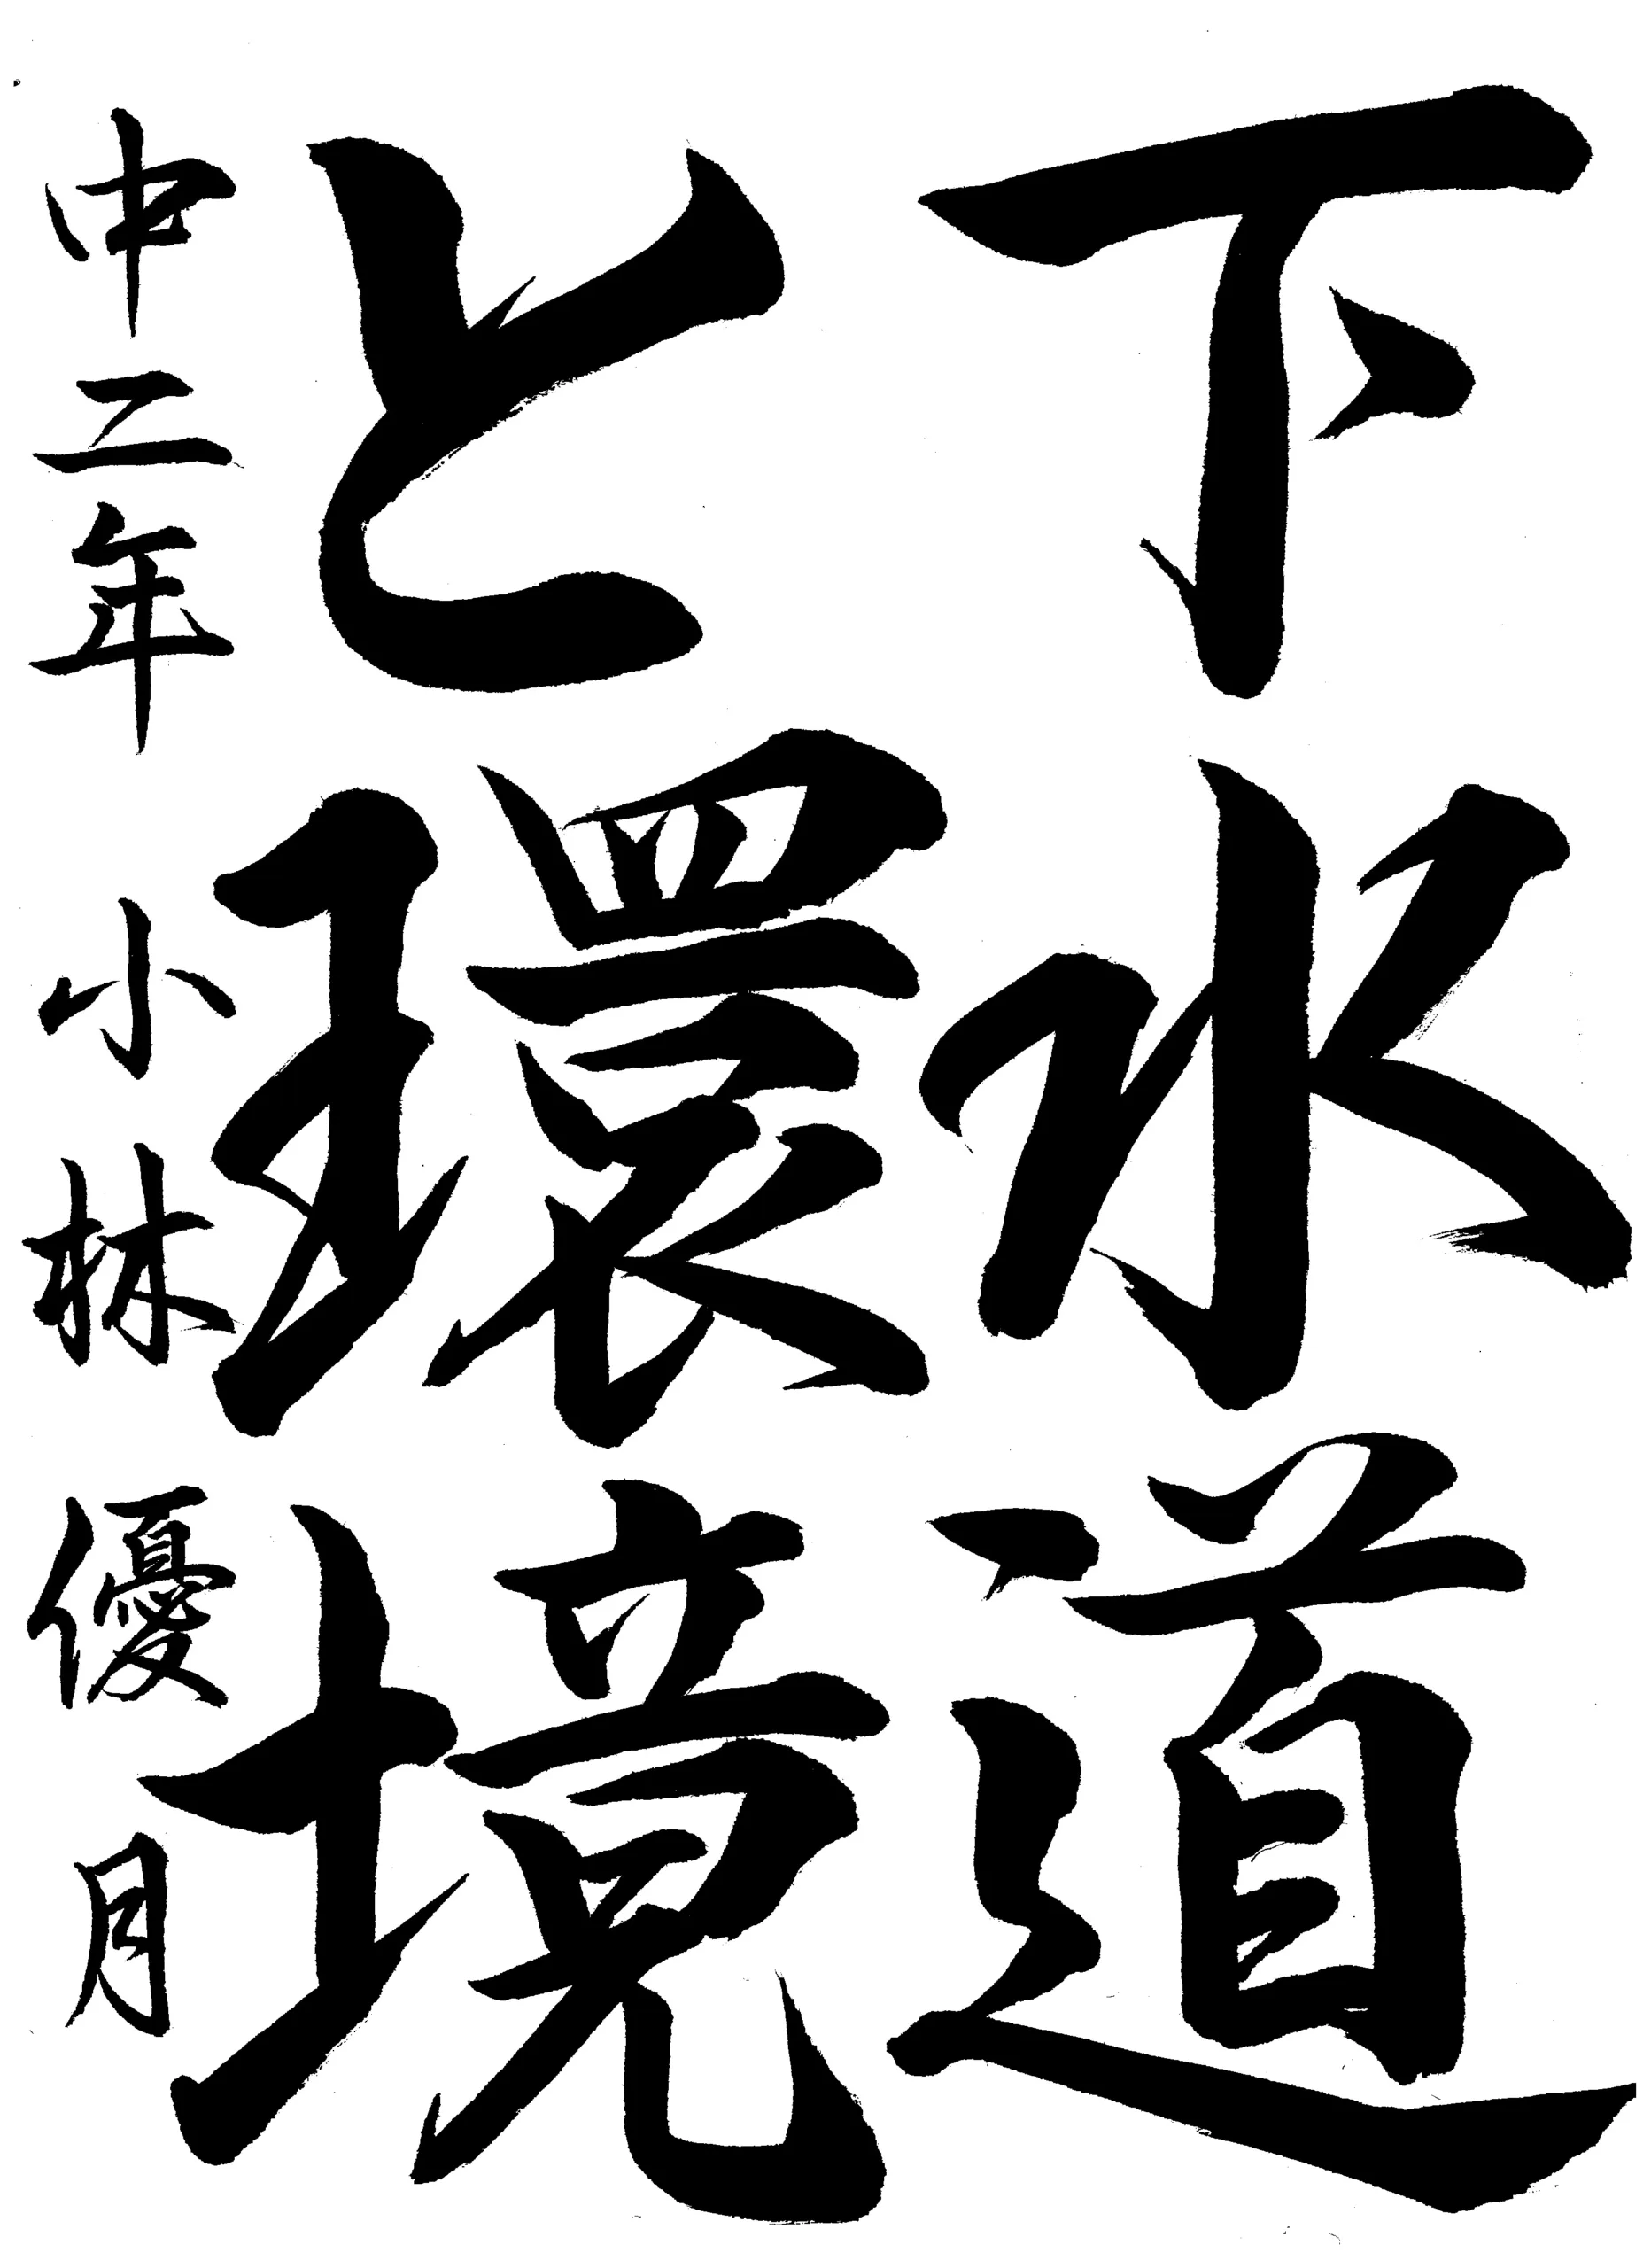 下水道
と環境
中二年 小林優月